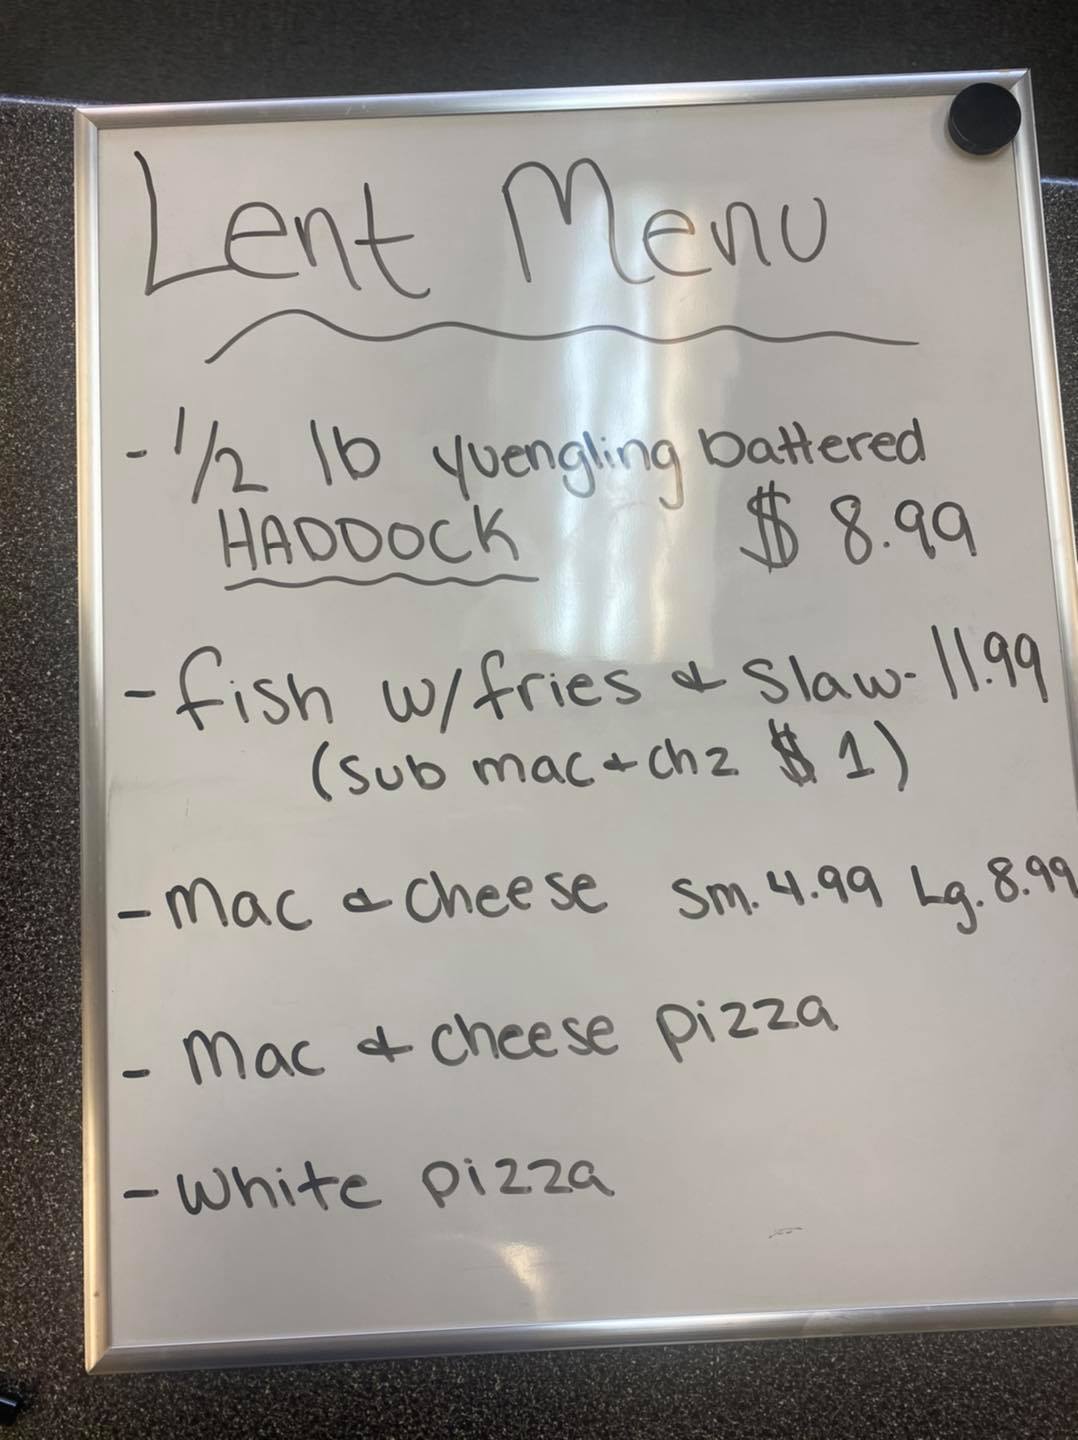 Lent Menu
- 1/2 lb yuengling battered
HADDOCK $ 8.99
- fish w/fries & Slaw - 11.99
(sub mac + chz $ 1)
- Mac & cheese Sm. 4.99 Lg. 8.99
- Mac & cheese pizza
- white pizza